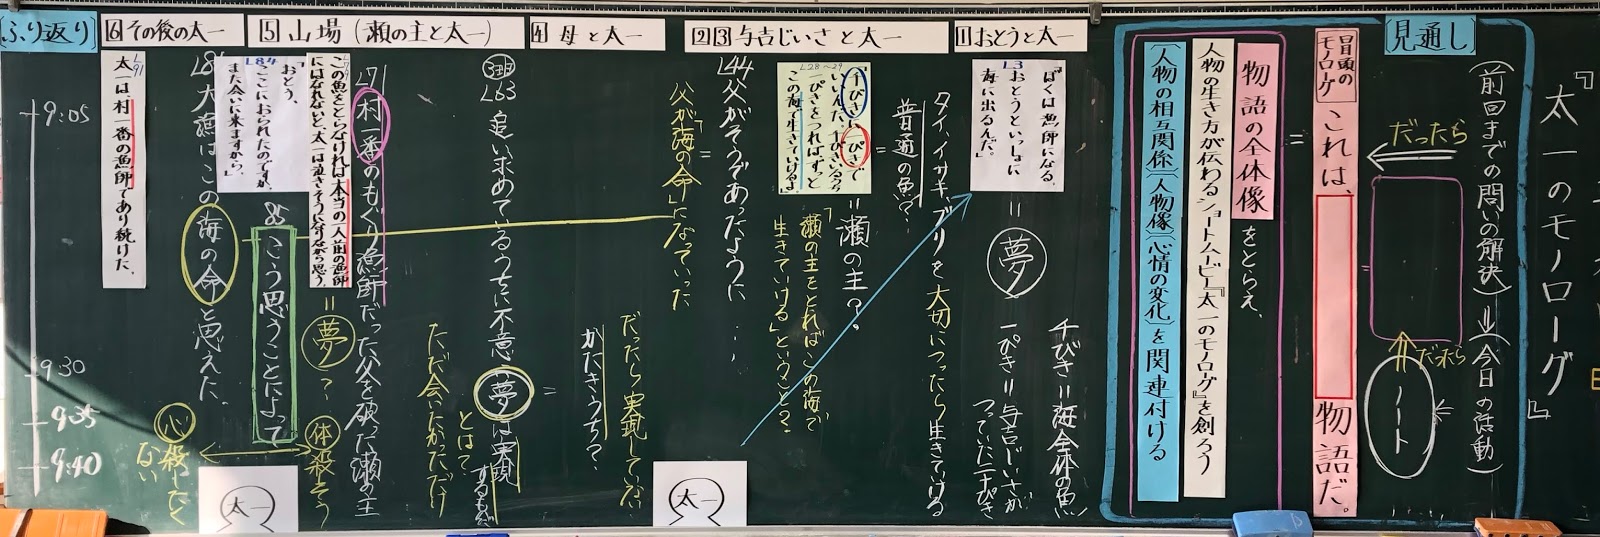 『太一のモノローグ』
見通し
(前回までの問いの解決)⇒(今日の活動)
ノート
だったら
だったら
冒頭のモノローグ
これは、
物語だ。
=
物語の全体像をとらえ、
人物の生き方が伝わるショートムービー『太一のモノローグ』を創ろう
〔人物の相互関係〕〔人物像〕〔心情の変化〕を関連付ける
1 おとうと太一
L3
「ぼくは漁師になる。
おとうといっしょに
海に出るんだ。」
=
夢
千びき=海全体の魚
一ぴき=与吉じいさが
つっていた一ぴき
2 3 与吉じいさと太一
タイ、イサキ、ブリを大切につったら生きていける
普通の魚?
=
L28~29
「千びきに一ぴきで
いいんだ。千びきいるうち
一ぴきをつれば、ずっと
この海で生きていけるよ。」
=瀬の主?
「瀬の主をとればこの海で
生きていける」ということ?
L44父がそうであったように…
=
父が「海の命」になっていった
4 母と太一
だったら実現していない
かたきうち?
=
3場面
L63
追い求めているうちに不意に夢は実現するものだ
とは?
ただ会いたかただけ
5 山場(瀬の主と太一)
L71
村一番のもぐり漁師だった父を破った瀬の主
この魚をとらなければ本当の一人前の漁師
にはなれないと、太一は泣きそうになりながら思う。
=
夢?
L84
「おとう、
ここにおられたのですか。
また会いに来ますから。」
85
こう思うことによって
体 殺そう
心 殺したくない
太一
太一
6 その後の太一
大漁はこの海の命と思えた。
L91
太一は、村一番の漁師であり続けた。
ふり返り
9:05
9:30
9:35
9:40